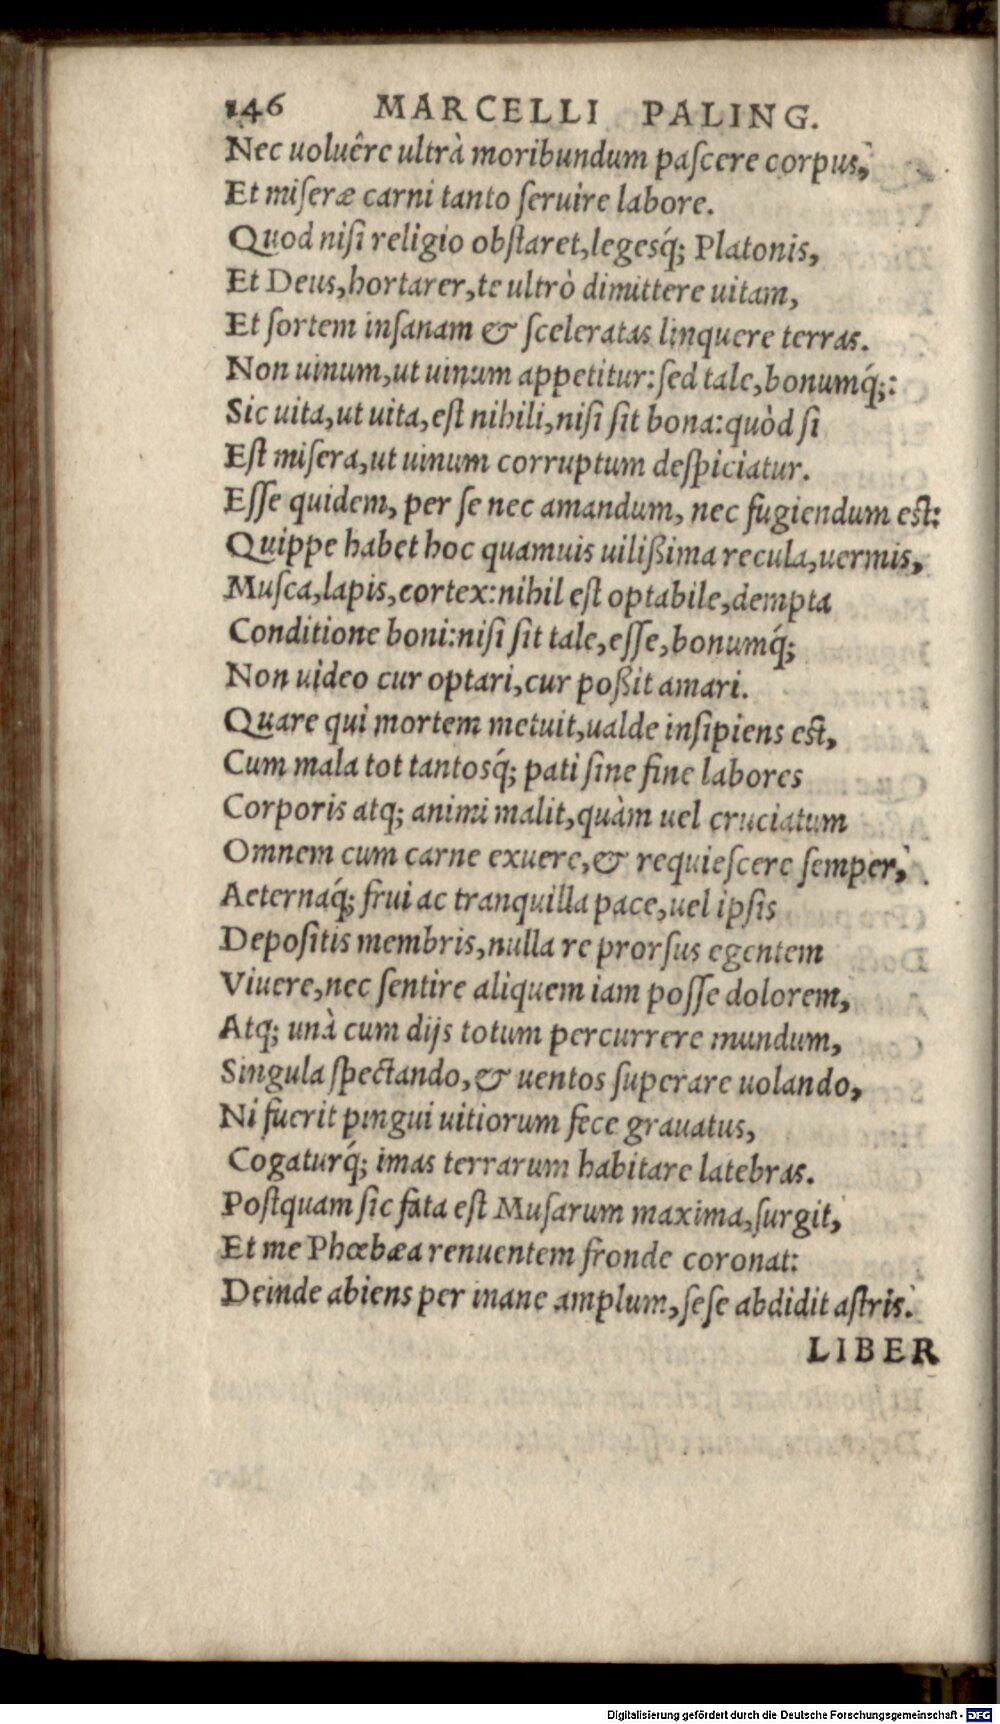 146 MARCELLI PALING.
Nec uoluêre ultrà moribundum paſcere corpus,
Et miſeræ carni tanto ſeruire labore.
Quod niſi religio obſtaret, legesq́; Platonis,
Et Deus, hortarer, te ultrò dimittere uitam,
Et ſortem inſanam & ſceleratas linquere terras.
Non uinum, ut uinum appetitur: ſed tale, bonumq́;:
Sic uita, ut uita, eſt nihili, niſi ſit bona: quòd ſi
Eſt miſera, ut uinum corruptum deſpiciatur.
Eſſe quidem, per ſe nec amandum, nec fugiendum est:
Quippe habet hoc quamuis uilißima recula, uermis,
Muſca, lapis, cortex: nihil eſt optabile, dempta
Conditione boni: niſi ſit tale, eſſe, bonumq́;
Non uideo cur optari, cur poßit amari.
Quare qui mortem metuit, ualde inſipiens est,
Cum mala tot tantosq́; pati ſine fine labores
Corporis atq; animi malit, quàm uel cruciatum
Omnem cum carne exuere, & requieſcere ſemper,
Aeternaq́; frui ac tranquilla pace, uel ipſis
Depoſitis membris, nulla re prorſus egentem
Viuere, nec ſentire aliquem iam poſſe dolorem,
Atq; unà cum dijs totum percurrere mundum,
Singula ſpectando, & uentos ſuperare uolando,
Ni fuerit pingui uitiorum fece grauatus,
Cogaturq́; imas terrarum habitare latebras.
Poſtquam ſic fata eſt Muſarum maxima, ſurgit,
Et me Phœbæa renuentem fronde coronat:
Deinde abiens per inane amplum, ſeſe abdidit aſtris.
LIBER
Digitalisierung gefördert durch die Deutsche Forschungsgemeinschaft - DFG